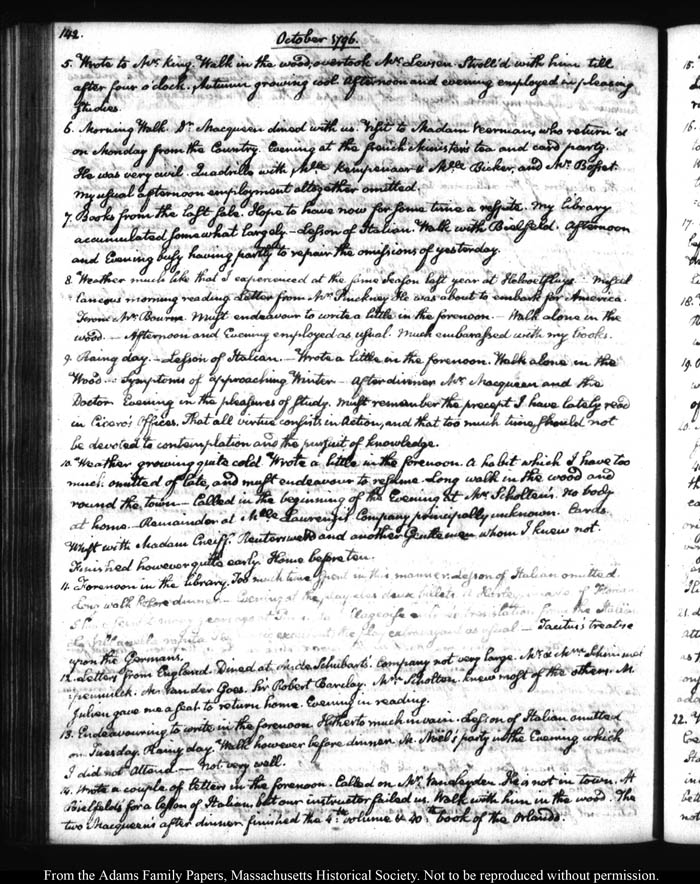 142.
October 1796.
5. Wrote to Mr. King. Walk in the wood, overtook Mr. Lewsen. Stroll'd with him till
after four o'clock. Autumn growing cool. Afternoon and evening employed in pleasing
Studies.
6. Morning Walk. Dr. Macqueen dined with us. Visit to Madam Veerman, who return'd
on Monday from the Country. Evening at the french Minister's tea and card party.
He was very civil. Quadrille with Mlle. Kempenaar & Mlle. Bicker, and Mr. Bosset.
My usual afternoon employment altogether omitted.
7. Books from the last sale. Hope to have now for some time a respite. My library
accumulated somewhat largely.— Lesson of Italian. Walk with Bielfeld. Afternoon
and Evening busy having partly to repair the omissions of yesterday.
8. Weather much like that I experienced at the same season last year at Helvoetsluys.— Miscel
laneous morning reading. Letter from Mr. Pinckney. He was about to embark for America.
From Mr. Bourne. Must endeavour to write a little in the forenoon.— Walk alone in the
wood.— Afternoon and Evening employed as usual. Much embarassed with my books.
9. Rainy day.— Lesson of Italian.— Wrote a little in the forenoon. Walk alone in the
Wood.— Symptoms of approaching Winter.— After dinner Mr. Macqueen and the
Doctor. Evening in the pleasures of Study. Must remember the precept I have lately read
in Cicero's Offices, That all virtue consists in Action, and that too much time should not
be devoted to contemplation and the pursuit of knowledge.
10. Weather growing quite cold. Wrote a little in the forenoon. A habit which I have too
much omitted of late, and must endeavour to resume. Long walk in the wood and
round the town.— Called in the beginning of the Evening at Mr. Scholten's. No body
at home. Remainder at Mlle. Laurenzi's Company principally unknown. Cards.
Whist with Madam Creiff. Reuterswerd and another Gentleman whom I knew not.
Finished however quite early. Home before ten.
11. Forenoon in the library. Too much time spent in this manner. Lesson of Italian omitted.
Long walk before dinner.— Evening at the play, Les deux billets of Florian
translation from the Italian
the play extravagant as usual.— Tacitus's treatise
upon the Germans.
12. Letters from England. Dined at Mr. de Schubart's. Company not very large. Mr. & Mrs.
Mr. Van der Goes. Sir Robert Barclay. Mrs. Scholten. knew most of the others. M.
Julien gave me a seat to return home. Evening in reading.
13. Endeavouring to write in the forenoon. Hitherto much in vain. Lesson of Italian omitted
on Tuesday. Rainy day. Walk however before dinner. M. Noël's party in the Evening which
I did not attend.— Not very well.
14. Wrote a couple of letters in the forenoon. Called on Mr. Vanleyden. He is not in town. At
Bielfeld's for a lesson of Italian, but our instructor failed us. Walk with him in the wood. The
two Macqueen's after dinner. finished the 4th. volume & 40th. book of the Orlando.
From the Adams Family Papers, Massachusetts Historical Society. Not to be reproduced without permission.